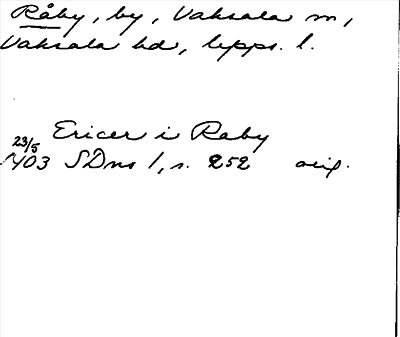 Råby, by, Vaksala sn,
Vaksala hd, Upps. l.
Ericer i Raby
23/5
1403 SDns 1, s. 252 orig.